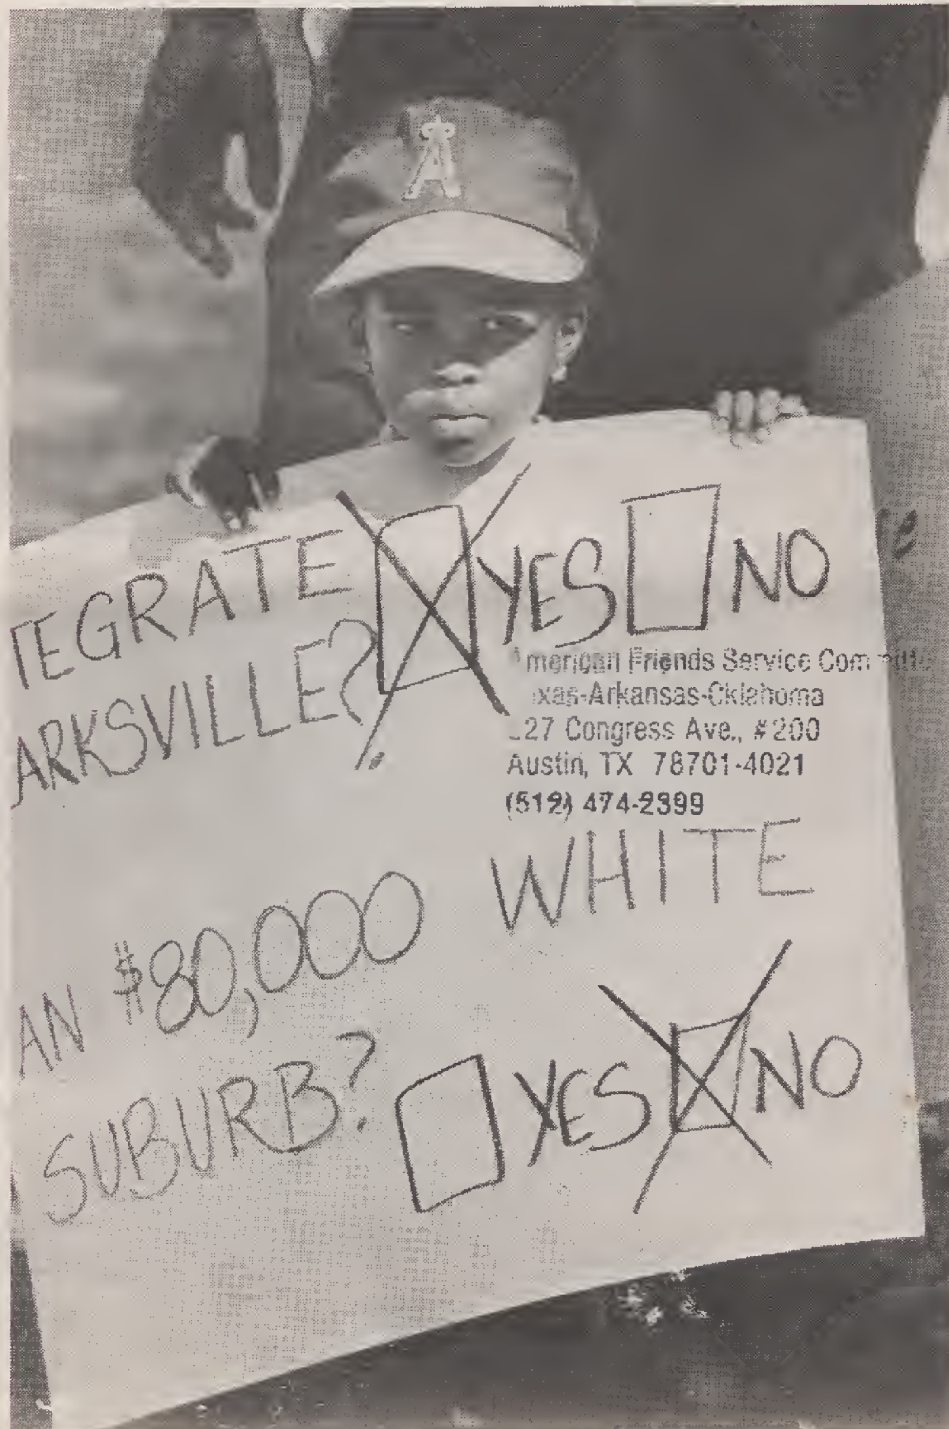 A
TEGRATE YES NO
ARKSVILLE?
American Friends Service Committe
exas-Arkansas-Oklahoma
227 Congress Ave., #200
Austin, TX 78701-4021
(512) 474-2399
AN $80,000 WHITE
SUBURB? YES NO